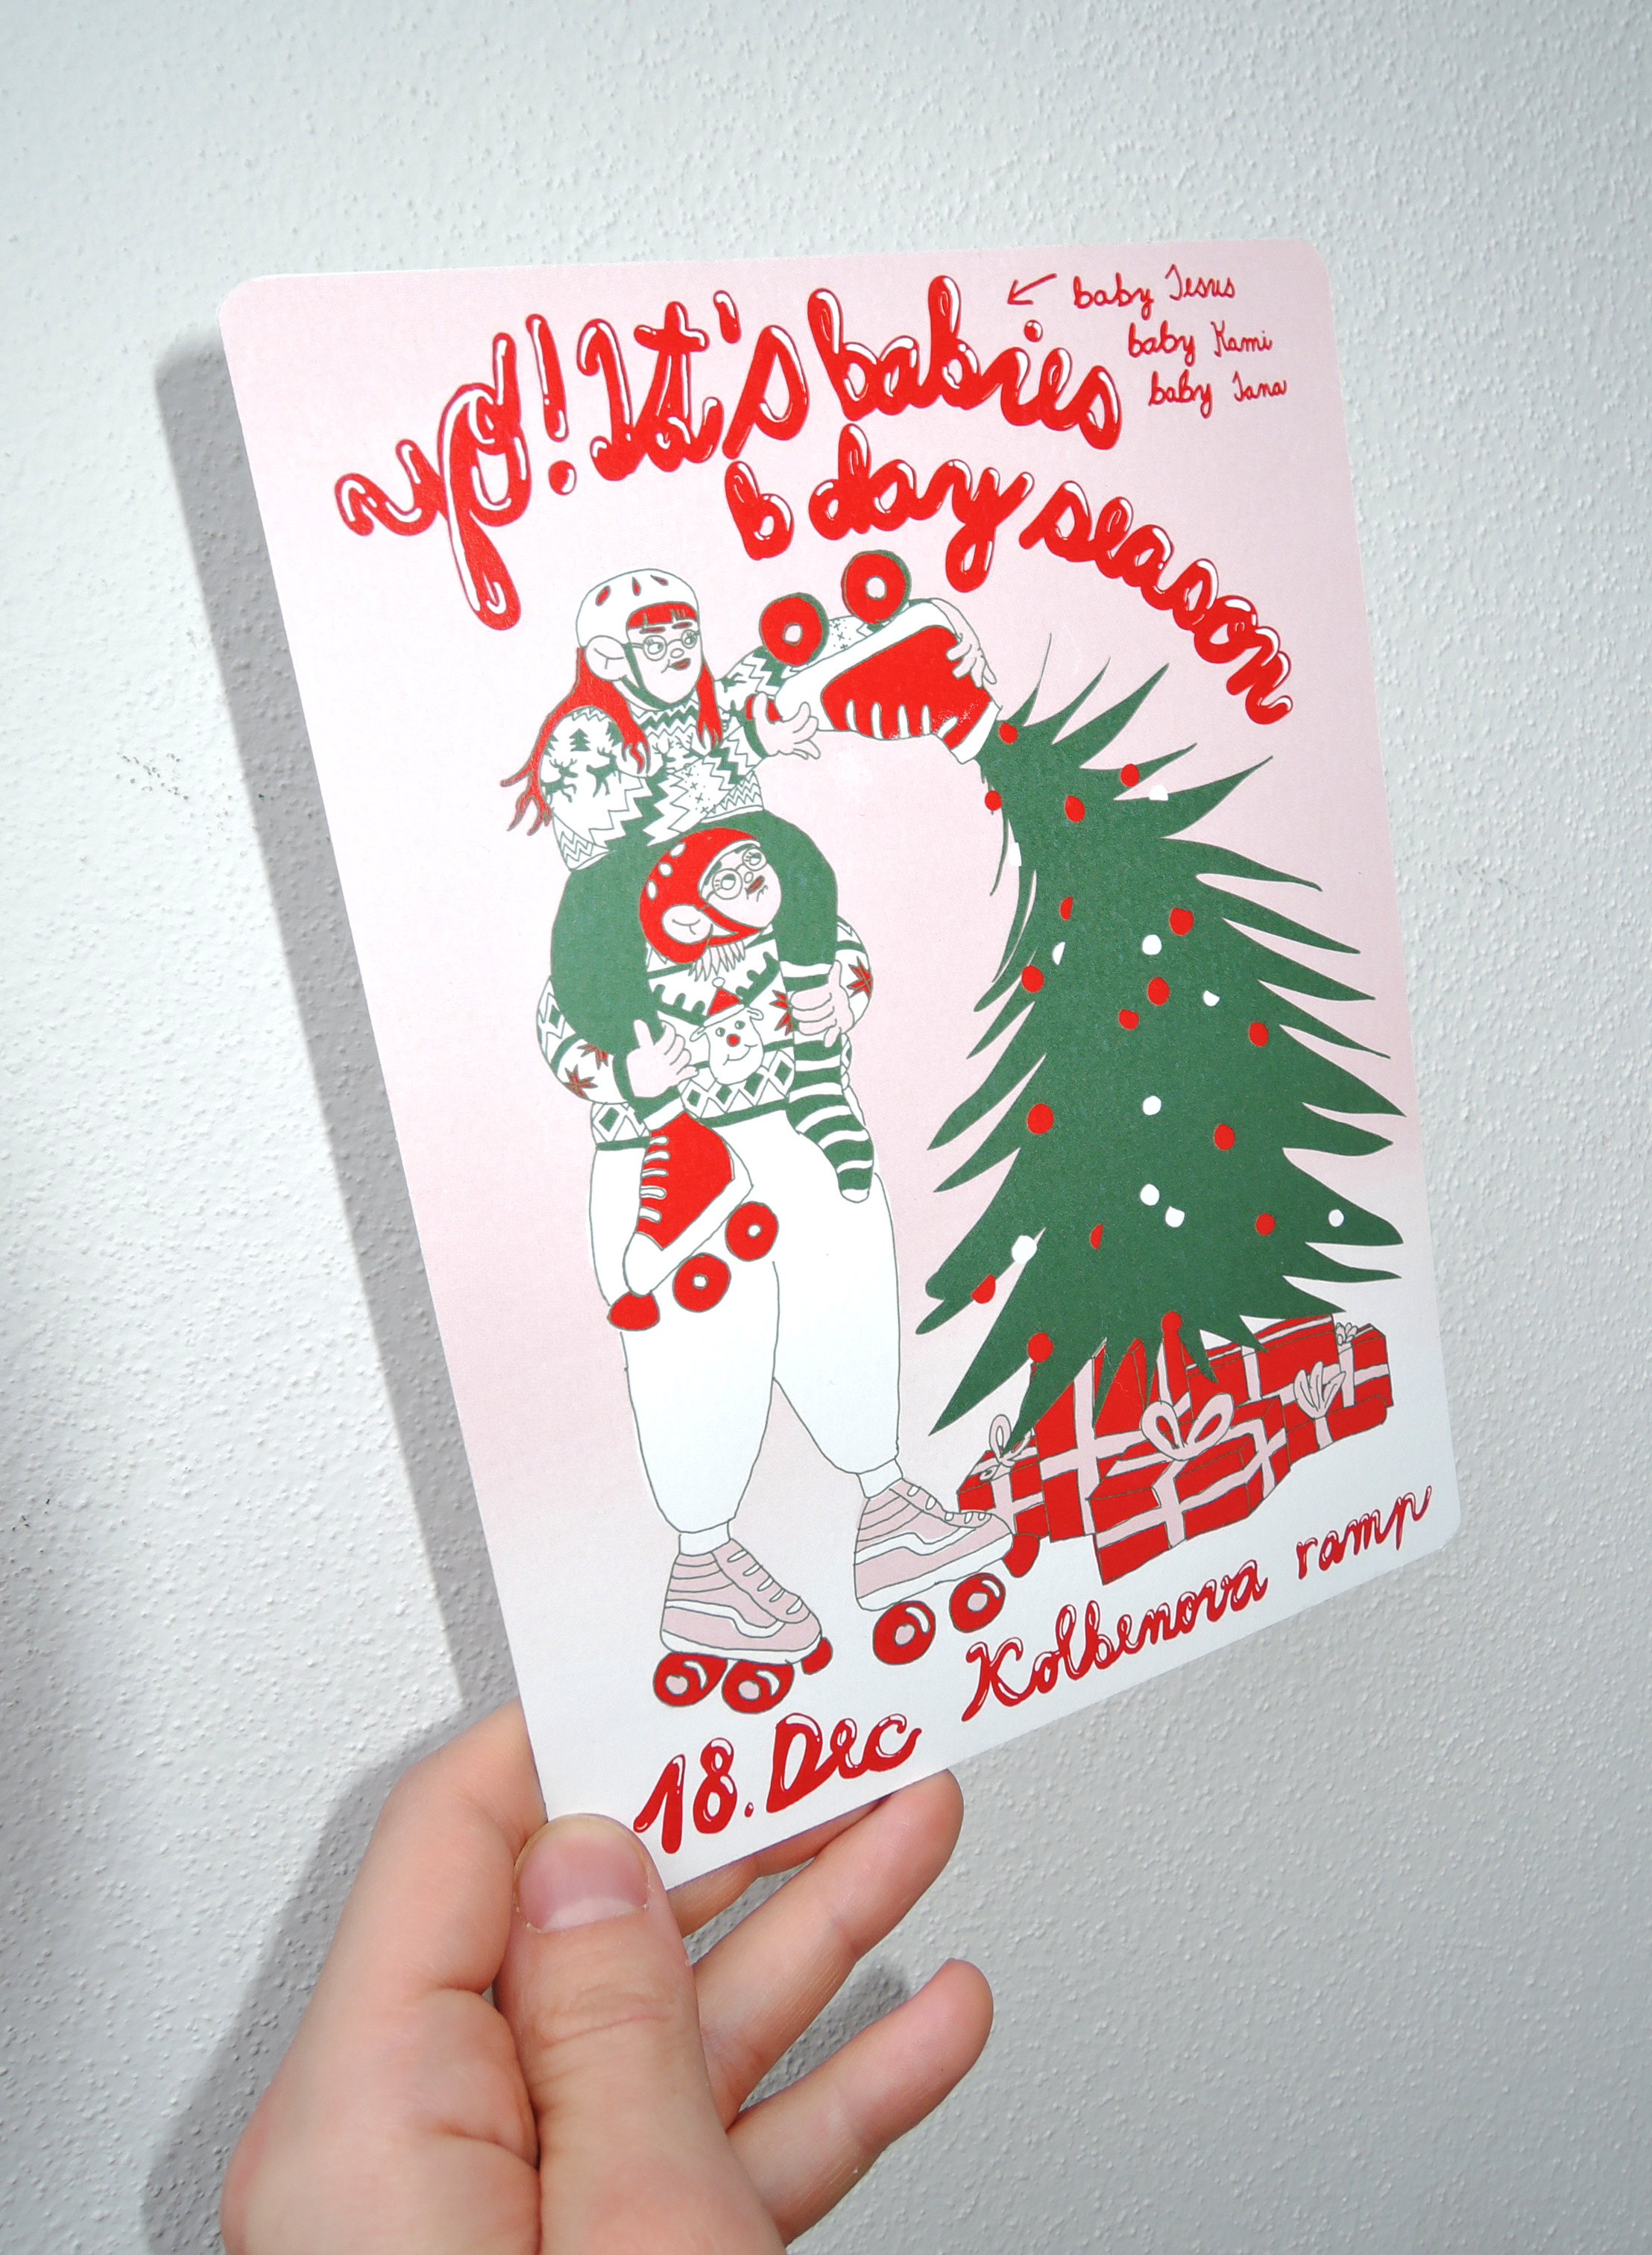 yo! It's babies
b day season
baby Jesus
baby Kami
baby Jana
18. Dec Kolbenova ramp